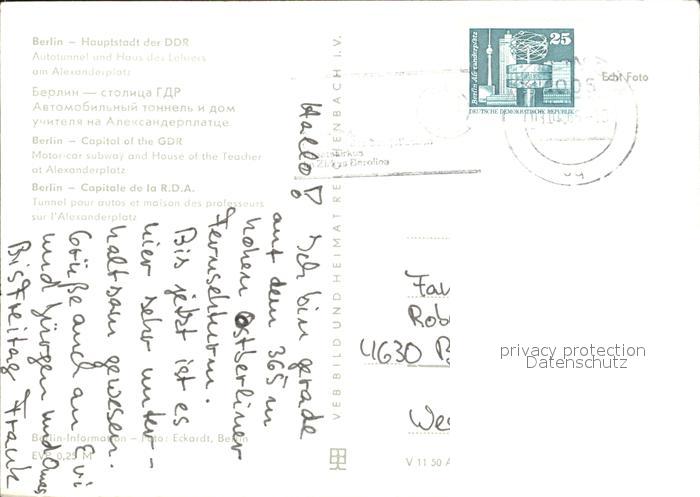 Berlin – Hauptstadt der DDR
Autotunnel und Haus des Lehrers
am Alexanderplatz
Берлин — столица ГДР
Автомобильный тоннель и дом
учителя на Александерплатце
Berlin – Capital of the GDR
Motor-car subway and House of the Teacher
at Alexanderplatz
Berlin – Capitale de la R.D.A.
Tunnel pour autos et maison des professeurs
sur l'Alexanderplatz
Hallo! Ich bin gerade
auf dem 365 m
hohen Ostberliner
Fernsehturm.
Bis jetzt ist es
hier sehr unter-
haltsam gewesen.
Grüße auch an Evi
und Jürgen und Omas
Bis Freitag Frank
Berlin-Information – Foto: Eckardt, Berlin
EVP 0,25 M
VEB BILD UND HEIMAT REICHENBACH I. V.
V 11 50
25
Berlin-Alexanderplatz
DEUTSCHE DEMOKRATISCHE REPUBLIK
Echt Foto
Rob
4630 B
privacy protection
Datenschutz